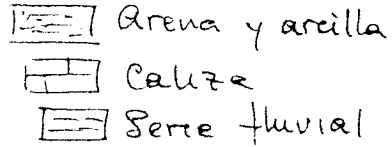 Arena y arcilla
Caliza
Serie fluvial